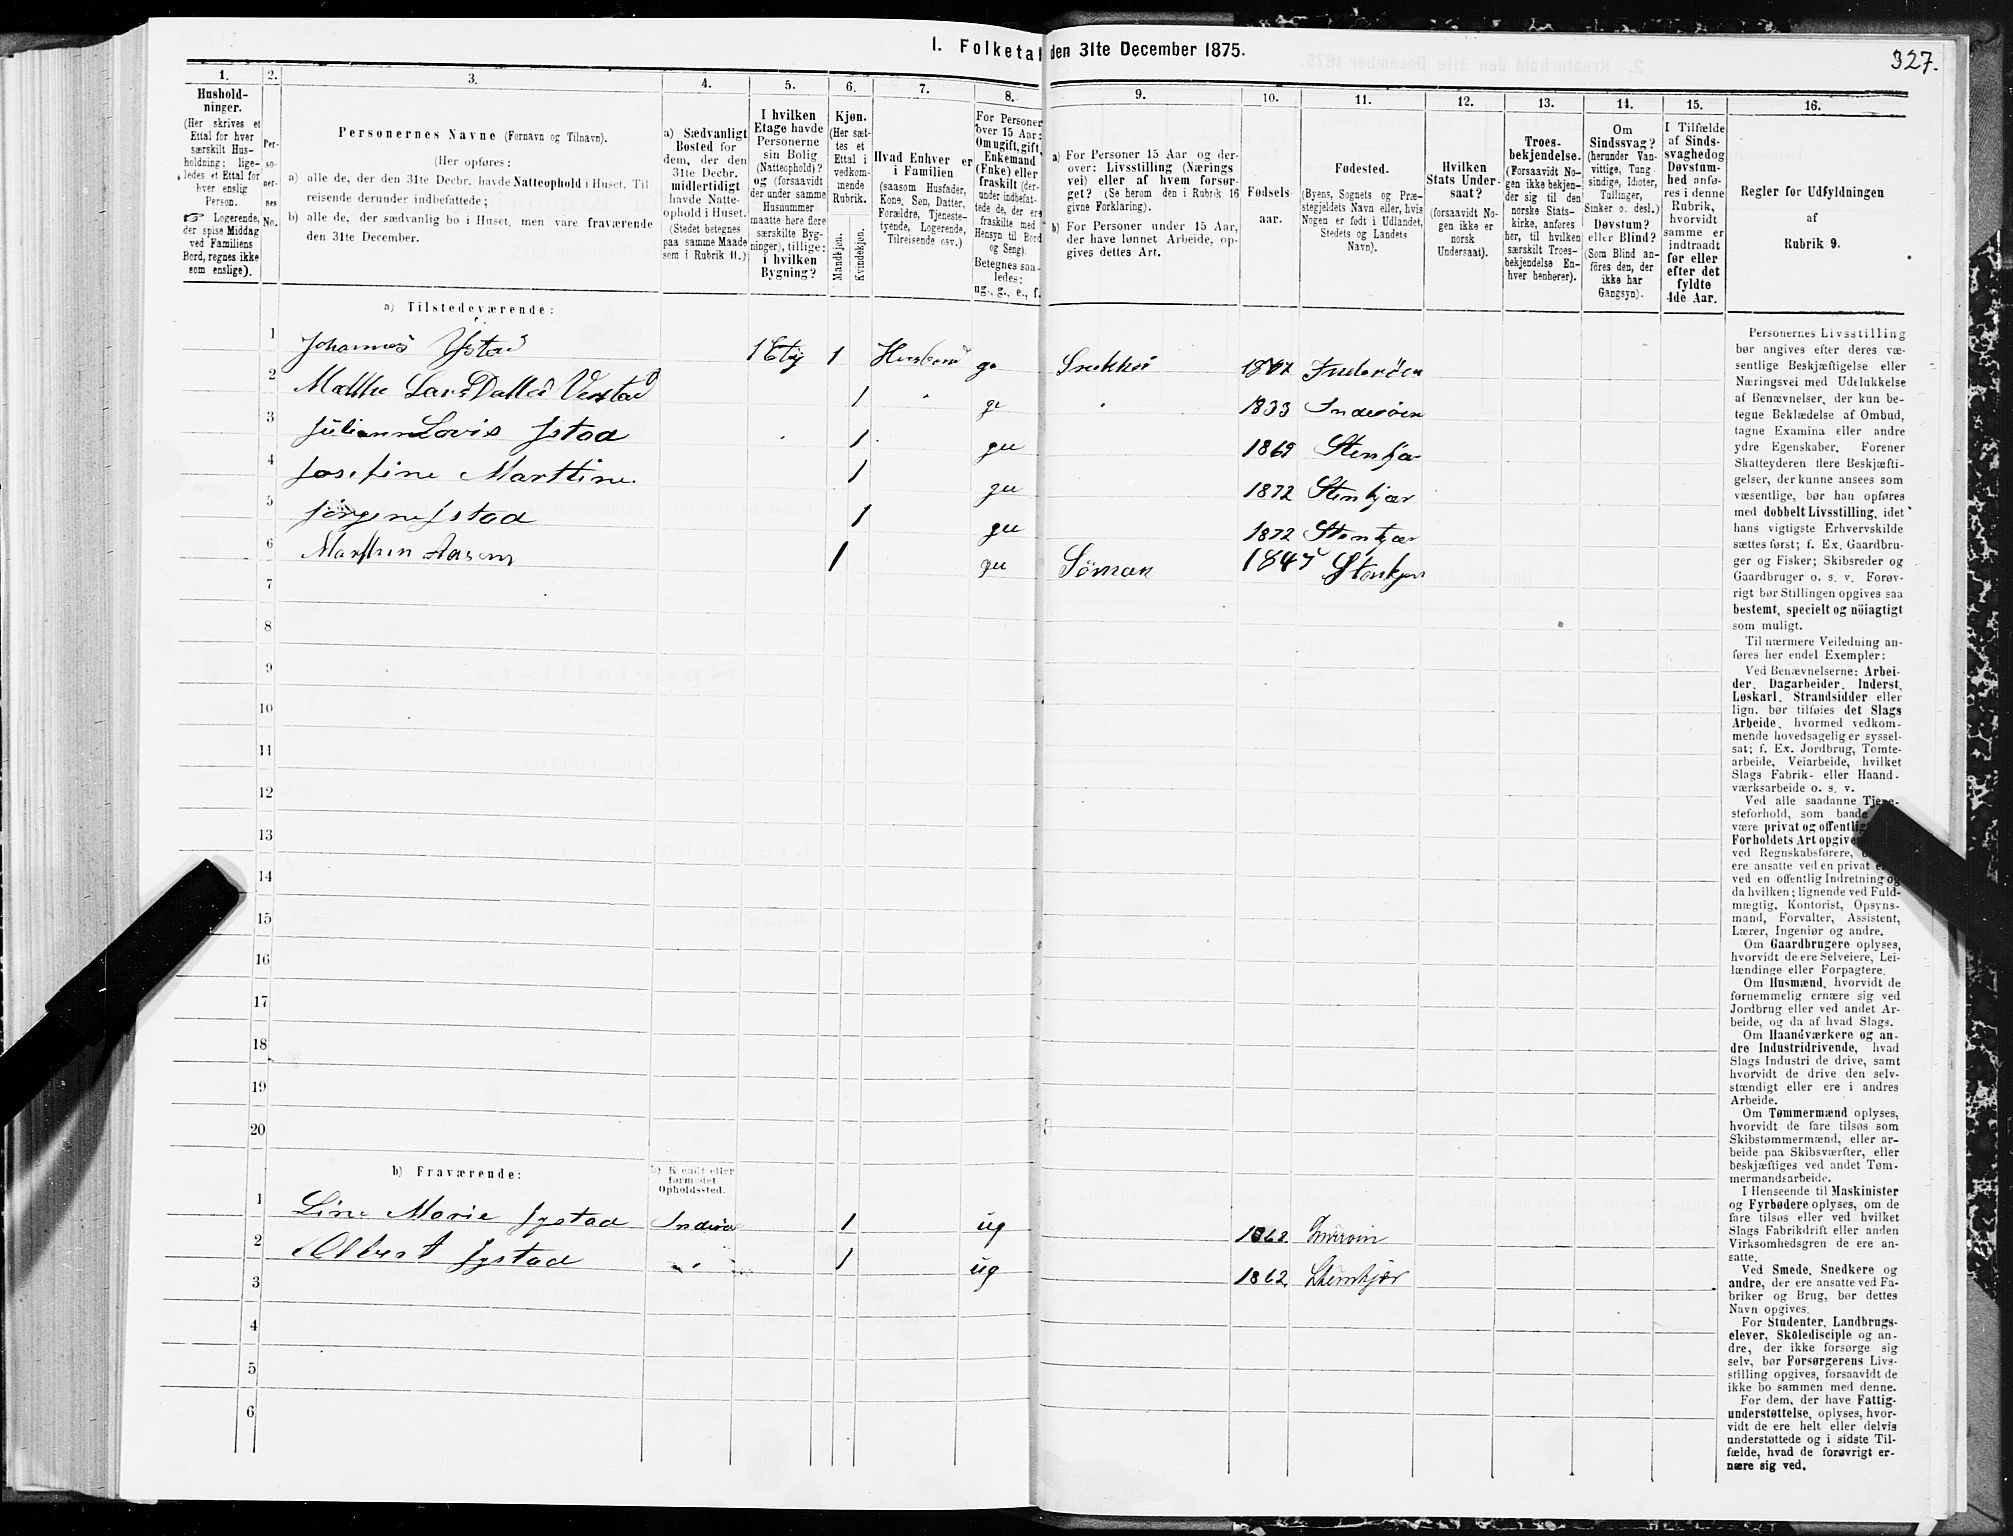 1. Folketal den 31te December 1875.
327.
1.
Hushold-
ninger.
(Her skrives et
Ettal for hver
særskilt Hus-
holdning; lige-
ledes et Ettal for
hver enslig
Person.
☞ Logerende,
der spise Middag
ved Familiens
Bord, regnes ikke
som enslige).
2.
Per-
so-
ner-
nes
No.
3.
Personernes Navne (Fornavn og Tilnavn).
(Her opføres:
a) alle de, der den 31te Decbr. havde Natteophold i Huset, Til-
reisende derunder indbefattede;
b) alle de, der sædvanlig bo i Huset, men vare fraværende
den 31te December.
4.
a) Sædvanligt
Bosted for
dem, der den
31te Decbr.
midlertidigt
havde Natte-
ophold i Huset.
(Stedet betegnes
paa samme Maade
som i Rubrik 11.)
5.
I hvilken
Etage havde
Personerne
sin Bolig
(Natteophold)?
og (forsaavidt
der under samme
Husnummer
maatte høre flere
særskilte Byg-
ninger), tillige:
i hvilken
Bygning?
6.
Kjøn.
(Her sæt-
tes et
Ettal i
vedkom-
mende
Rubrik.
Mandkjøn.
Kvindekjøn.
7.
Hvad Enhver er
i Familien
(saasom Husfader,
Kone, Søn, Datter,
Forældre, Tjeneste-
tyende, Logerende,
Tilreisende osv.)
8.
For Personer
over 15 Aar:
Om ugift, gift,
Enkemand
(Enke) eller
fraskilt (der-
under indbefat-
tede de, der ere
fraskilte med
Hensyn til Bord
og Seng).
Betegnes saa-
ledes:
ug., g., e., f.
9.
a) For Personer 15 Aar og der-
over: Livsstilling (Nærings
vei) eller af hvem forsør-
get? (Se herom den i Rubrik 16
givne Forklaring).
b) For Personer under 15 Aar,
der have lønnet Arbeide, op-
gives dettes Art.
10.
Fødsels-
aar.
11.
Fødested.
(Byens, Sognets og Præ-
stegjeldets Navn eller, hvis
Nogen er født i Udlandet,
Stedets og Landets
Navn).
12.
Hvilken
Stats Under-
saat?
(forsaavidt No-
gen ikke er
norsk
Undersaat).
13.
Troes-
bekjendelse.
(Forsaavidt No-
gen ikke bekjen-
der sig til den
norske Stats-
kirke, anføres
her, til hvilken
særskilt Troes-
bekjendelse En-
hver henhører).
14.
Om
Sindssvag?
(herunder Van-
vittige, Tung
sindige, Idioter,
Tullinger,
Sinker o. desl.)
Døvstum?
eller Blind?
(Som Blind an-
føres den, der
ikke har
Gangsyn).
15.
I Tilfælde
af Sinds-
svaghed og
Døvstum-
hed anfø-
res i denne
Rubrik,
hvorvidt
samme er
indtraadt
før eller
efter det
fyldte
4de Aar.
16.
Regler for Udfyldningen
af
Rubrik 9.
a) Tilstedeværende:
1 Johannes Ystad 1 Etg 1 g Snekker Inderøen
2 1 g " 1833 Inderøen
3 Lovis Ystad 1 1869
4 Josefine Marthine 1 1872 Stenkjær
5 Jørgen Ystad 1 1872 Stenkjær
6 1 Söman Stenkjær
7
8
9
10
11
12
13
14
15
16
17
18
19
20
b) Fraværende:
b) Kjendt eller
formodet
Opholdssted.
1 Line Marie Ystad Inderøe 1 ug
2 Albert Ystad " 1 ug 1862 Stenkjær
3
4
5
6
Personernes Livsstilling
bør angives efter deres væ-
sentlige Beskjæftigelse eller
Næringsvei med Udelukkelse
af Benævnelser, der kun be-
tegne Beklædelse af Ombud,
tagne Examina eller andre
ydre Egenskaber. Forener
Skatteyderen flere Beskjæfti-
gelser, der kunne ansees som
væsentlige, bør han opføres
med dobbelt Livsstilling, idet
hans vigtigste Erhvervskilde
sættes først; f. Ex. Gaardbru-
ger og Fisker; Skibsreder og
Gaardbruger o. s. v. Forøv-
rigt bør Stillingen opgives saa
bestemt, specielt og nöiagtigt
som muligt.
Til nærmere Veiledning an-
føres her endel Exempler:
Ved Benævnelserne: Arbei-
der, Dagarbeider, Inderst,
Løskarl, Strandsidder eller
lign. bør tilføies det Slags
Arbeide, hvormed vedkom-
mende hovedsagelig er syssel-
sat; f. Ex. Jordbrug, Tomte-
arbeide, Veiarbeide, hvilket
Slags Fabrik- eller Haand-
værksarbeide o. s. v.
Ved alle saadanne Tjene-
steforhold, som baade
være privat og offentlig
Forholdets Art opgive
ved Regnskabsførere,
ere ansatte ved en privat
ved en offentlig Indretning og
da hvilken; lignende ved Fuld-
mægtig, Kontorist, Opsyns-
mand, Forvalter, Assistent,
Lærer, Ingeniør og andre.
Om Gaardbrugere oplyses,
hvorvidt de ere Selveiere, Lei-
lændinge eller Forpagtere.
Om Husmænd, hvorvidt de
førnemmelig ernære sig ved
Jordbrug eller ved andet Ar-
beide, og da af hvad Slags.
Om Haandværkere og an-
dre Industridrivende, hvad
Slags Industri de drive, samt
hvorvidt de drive den selv-
stændigt eller ere i andres
Arbeide.
Om Tømmermænd oplyses,
hvorvidt de fare tilsøs som
Skibstømmermænd, eller ar-
beide paa Skibsværfter, eller
beskjæftiges ved andet Tøm-
mermandsarbeide.
I Henseende til Maskinister
og Fyrbødere oplyses, om de
fare tilsøs eller ved hvilket
Slags Fabrikdrift eller anden
Virksomhedsgren de ere an-
satte.
Ved Smede, Snedkere og
andre, der ere ansatte ved Fa-
briker og Brug, bør dettes
Navn opgives.
For Studenter, Landbrugs-
elever, Skoledisciple og an-
dre, der ikke forsørge sig
selv, bør Forsørgerens Livs-
stilling opgives, forsaavidt de
ikke bo sammen med denne.
For dem, der have Fattig-
understøttelse, oplyses, hvor-
vidt de ere helt eller delvis
understøttede og i sidste Til-
fælde, hvad de forøvrigt er-
nære sig ved.